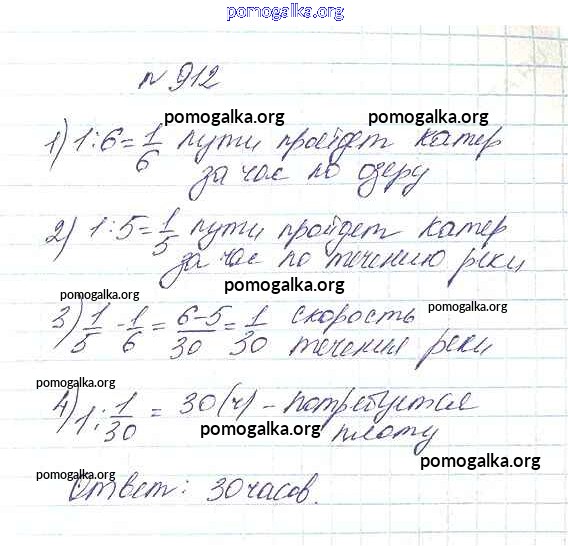 pomogalka.org
№ 912
pomogalka.org
1) 1:6=1/6 пути пройдет катер
за час по озеру
pomogalka.org
2) 1:5=1/5 пути пройдет катер
за час по течению реки
pomogalka.org
pomogalka.org
pomogalka.org
3) 1/5 - 1/6 = 6-5/30 = 1/30 скорость
течения реки
pomogalka.org
4) 1:1/30 = 30(ч) - потребуется
плоту
pomogalka.org
pomogalka.org
pomogalka.org
Ответ: 30 часов.